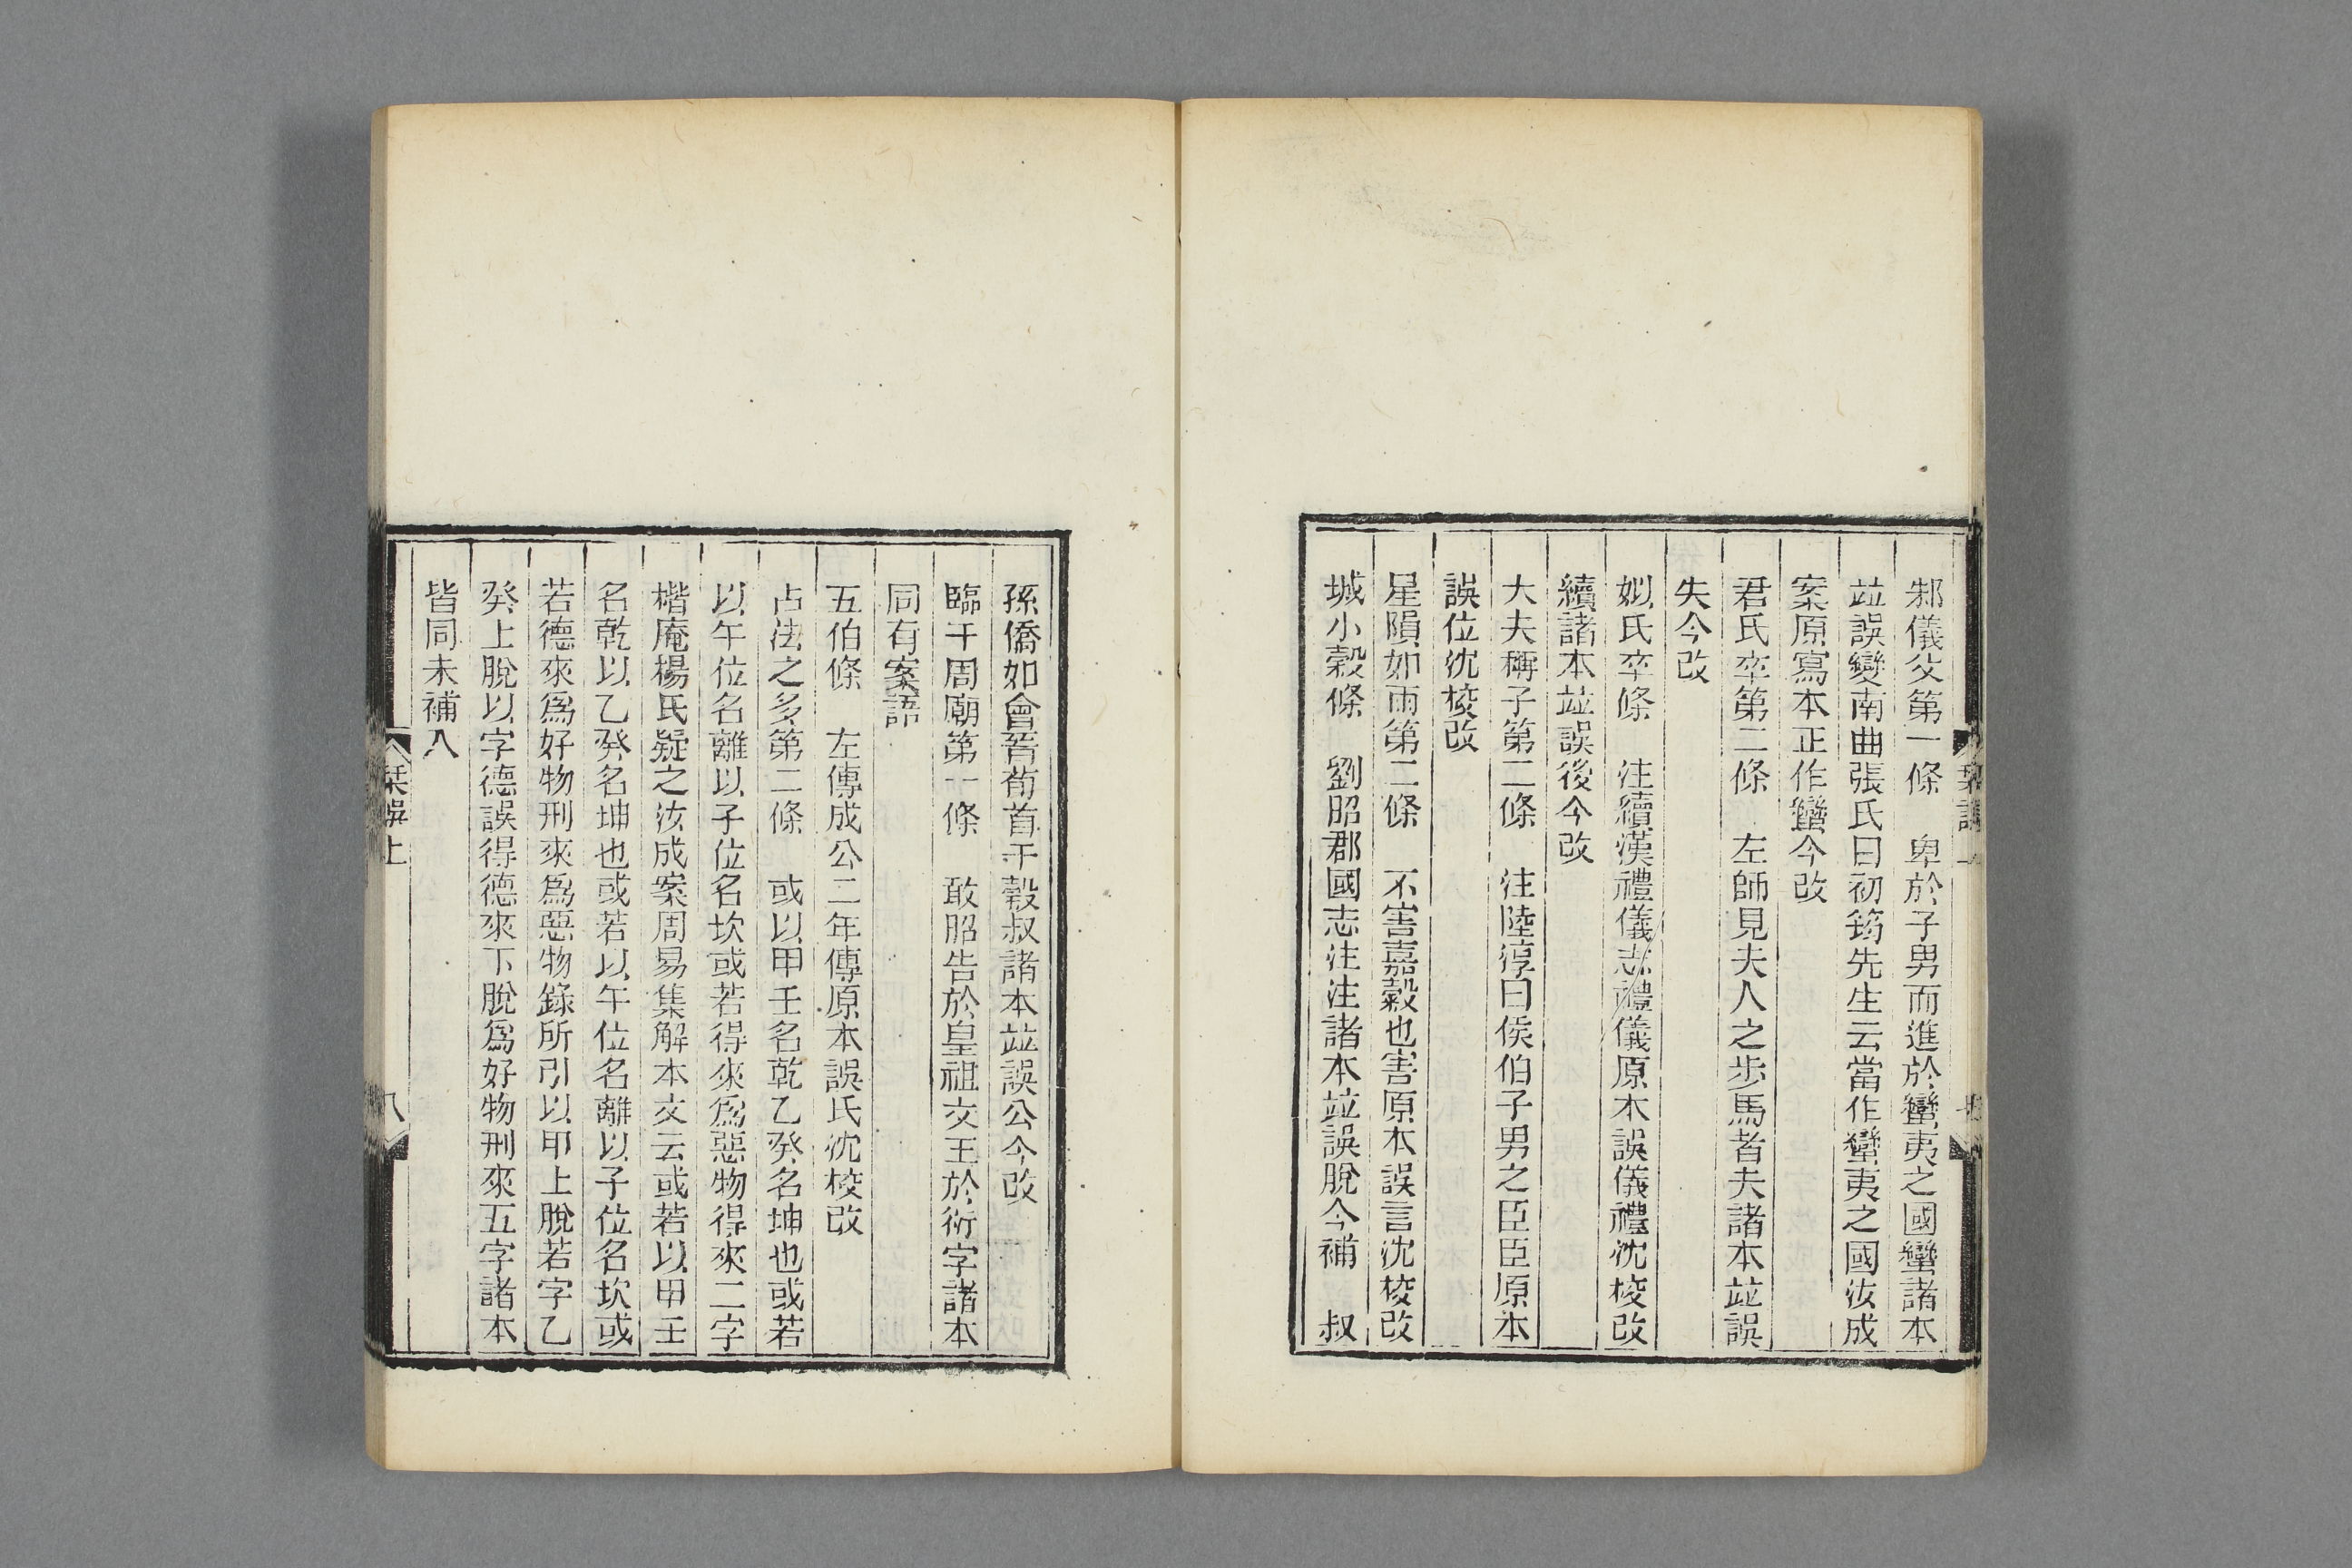 邾儀父第一條　卑於子男而進於蠻夷之國蠻諸本
竝誤變南曲張氏曰初筠先生云當作蠻夷之國汝成
案原寫本正作蠻今改
君氏卒第二條　左師見夫人之步馬者夫諸本竝誤
失今改
姒氏卒條　注續漢禮儀志禮儀原本誤儀禮沈校改
續諸本竝誤後今改
大夫稱子第二條　注陸淳曰侯伯子男之臣臣原本
誤位沈校改
星隕如雨第二條　不害嘉穀也害原本誤言沈校改
城小穀條　劉昭郡國志注注諸本竝誤脫今補　叔
孫僑如會晉荀首于穀叔諸本竝誤公今改
臨于周廟第一條　敢昭告於皇祖文王於衍字諸本
同有案語
五伯條　左傳成公二年傳原本誤氏沈校改
占法之多第二條　或以甲壬名乾乙癸名坤也或若
以午位名離以子位名坎或若得來爲惡物得來二字
楷庵楊氏疑之汝成案周易集解本文云或若以甲壬
名乾以乙癸名坤也或若以午位名離以子位名坎或
若德來爲好物刑來爲惡物錄所引以甲上脫若字乙
癸上脫以字德誤得德來下脫爲好物刑來五字諸本
皆同未補入
栞誤上
八